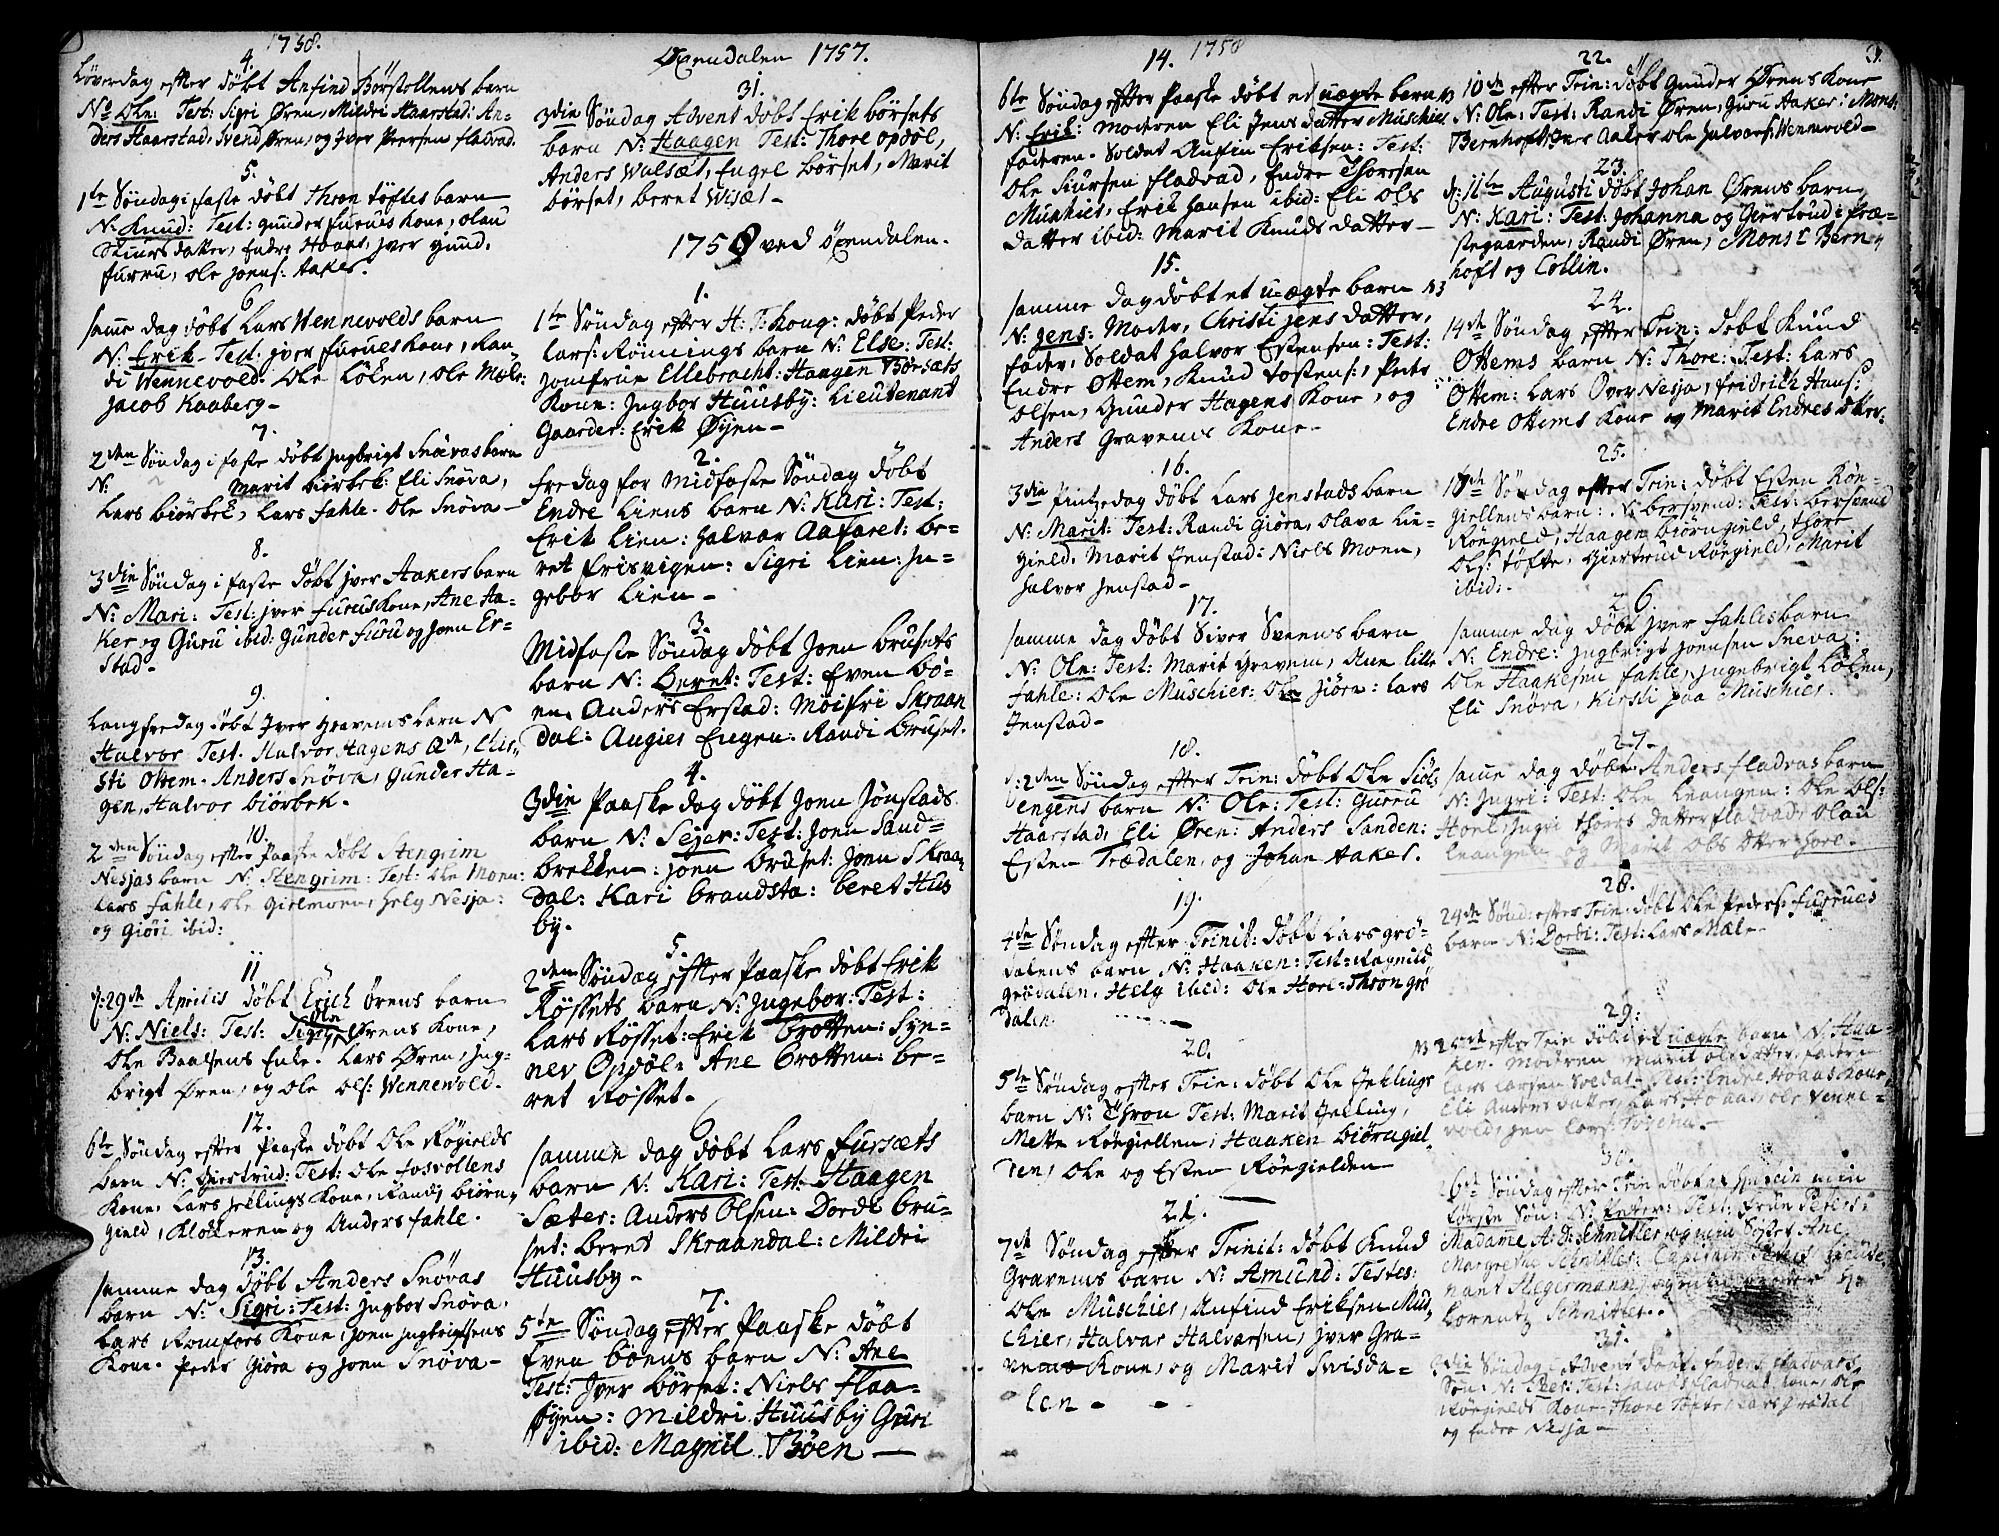 1758.
4.
Löverdag efter döbt Anfind Börstollens barn
No Ole: Test: Sigri Ören, Mildri Haarstad: An-
ders Haarstad, Svend Ören, og Iver Peersen fladvad.
5.
1te Söndag i faste döbt Thron töftes barn
N: Knud: Test: gunder furues Kone, olau
Skiurs datter, Endre Hoaas, Iver gund,
furru, ole Joens: Aaker.
6
samme dag döbt Lars Wennevolds barn
N: Erik - Test: Iver furues Kone, Ran
di Wennevold: Ole Löken, Ole Mæle:
Jacob Kaaberg-
7.
2den Söndag i faste döbt Ingbrigt Snöevas barn
N: Marit biörbek: Eli Snöva,
Lars biörbek, Lars fahle. Ole Snöva -
8.
3die Söndag i faste döbt Iver Aakers barn
N: Mari: Test: Iver furus Kone, Ane Aa-
ker og Guru ibid: gunder furu og Joen Er-
stad-
9.
Langfredag döbt Iver gravems barn N
Halvor Test. Halvor Hagens, Chir-
sti Ottem. Anders Snöva, Gunder Ha-
gen, Halvor biörbek.
10.
2den Söndag efter Paaske döbt Stengrim
Nesjas barn N. Stengrim: Test: Ole Monn:
Lars fahle, Ole gielmoen, helg Nesja:
og giöri ibid:
11
d: 29de Aprilis döbt Erich örens barn
N: Niels: Test: Sigri Ole Örens Kone,
Ole Baalsens Enke. Lars Ören, Ing-
brigt Ören, og Ole Ols: Wennevold.
12.
6te Söndag efter Paaske döbt Ole Röigields
barn N: giertrud: Test: Ole fosvollens
Kone, Lars Jellings Kone, Randi biörn
gield, Klokkeren og Anders fahle.
13.
samme dag döbt Anders Snövas
barn N: Sigri: Test: Ingbor Snöva,
Lars Romfors Kone, Joen Ingbrigtsens
Kone. Peder Giöra og Joen Snöva -
Öxendalen 1757.
31.
3die Söndag Advent döbt Erik börsets
barn N: Haagen Test: Thore opdöl,
Anders Walsæt, Engel börset, Marit
börset, beret Wisæt -
1758 ved öxendalen.
1.
1te Söndag efter H: 3: Kong: döbt Peder
Lars: Römings barn N: Else: Test:
Jomfrue Ellebracht: Haagen Börsæts
Kone: Ingbor Huusby: Lieutenant
Gaarder: Erik Öyen -
2.
fredag for midfaste Söndag döbt
Endre Liens barn N: Kari: Test:
Erik Lien: Halvor Aafaret: be-
ret frisvigen: Sigri Lien: In-
gebor Lien -
3.
Midfaste Söndag döbt Joen brusets
barn N: Beret: Test: Even bö-
en. Anders Erstad: Möifri Skraan
dal: Augies Engen: Randi bruset.
4.
3die Paaske dag döbt Joen Jönstads
barn N: Sejer: Test: Joen Sand-
brekken: Joen bruset: Joen Skraa,
dal: Kari brandstæ: beret Hus
by.
5.
2den Söndag efter Paaske döbt Erik
Rössets barn N: Ingebor: Test:
Lars Rösset: Erik brotten: Syn-
nev Opdöl: Ane brotten: be-
ret Rösset -
6
samme dag döbt Lars fursæts
barn N: Kari: Test: Haagen
Sæter: Anders Olsen: Dorde bru-
set: beret Skraandal: Mildri
Huusby -
7.
5te Söndag efter Paaske döbt
Even böens barn N: Ane
Test: Iver börset: Niels flaa-
öyen: Mildri Huusby Guri
ibid: Magnil Böen -
1758
14.
6te Söndag efter Paaske döbt et uægte barn
N: Erik: Moderen Eli Jens datter Muschier
faderen. Soldat Anfin Eriksen: Test:
Ole Siursen fladvad, Endre Thoresen
Muskier, Erik Hansen ibid: Eli Ols
datter ibid: Marit Knuds datter -
15.
samme dag döbt et u-ægte barn
N: Jens: Moder, Christi Jens datter,
fader, Soldat Halvor Estensen: Test:
Endre Ottem, Knud tostens:, Peter
Olsen, Gunder Hagens Kone, og
Anders Gravems Kone -
16.
3die Pintzedag döbt Lars Jenstads barn
N: Marit: Test: Randi Giöra, Olava Lie-
gield, Marit Jenstad: Niels Moen,
Halvor Jenstad -
17.
samme dag döbt Siver Sveens barn
N: Ole: Test: Marit Gravem, Ane Lille
fahle: Ole Muschier: Ole giöra: Lars
Jenstad -
18.
d: 2den Söndag efter Trin: döbt Ole Siöl
engens barn N: Ole: Test: Gurru
Haarstad, Eli Ören: Anders Sanden:
Esten Trædalen, og Johan Aaker.
19.
4de Söndag efter Trinit: döbt Lars grö-
dalens barn N: Haaken: Test: Ragnild
grödalen, Helg ibid: Ole Hoel: Thron grö
dalen -
20.
5te Söndag efter Trin: döbt Ole Jellings
barn N: Thron Test: Marit Jelling,
Mette Röngiellen, Haaken biörngiel-
den, Ole og Esten Röngielden
21.
7de Söndag efter Trinit: döbt Knud
Gravems barn N: Amund: Testes:
Ole Muschier, Anfind Eriksen Mus,
chier, Halvar Halvarsen, Iver Gra-
vems Kone, og Marit Svisda-
len -
22.
10de efter Trin: döbt Gunder Örens Kone
N: Ole: Test: Randi Ören, Guru Aaker: Mons:
Bernhoft Iver Aaker Ole Halvors: Wennevold -
23.
d: 11te Augusti döbt Johan Örens barn
N: Kari: Test: Johanna og Giörtrud i Præ-
stegaarden, Randi Ören, Monsr Bern-
hoft og Collin.
24.
14de Söndag efter Trin: döbt Knud
Ottems barn N: Thore: Test: Lars
Ottem: Lars Over Nesja, fridrich Hans:
Endre Ottems Kone og Marit Endres dtter.
25.
18de Söndag efter Trin: döbt Esten Rön-
giellens barn: N: bersvend: Test: bersvend
Röngield, Haagen biörngield, thore
Ols: töfte, Giertrud Röngield, Marit
ibid: -
26.
samme dag döbt Iver fahles barn
N: Endre: Ingbrigt Joensen Sneva:
Ole Haakesen fahle, Ingebrigt Löken,
Eli Snöva, Kirsti paa Muschier.
27.
samme dag döbt Anders fladvas barn
N: Ingri: Test: Ole Leangen: Ole Ols:
Hoel, Ingri thores datter fladvad, Olau
Leangen og Marit Ols dtter Hoel.
28.
24de Sönd: efter Trin: döbt Ole Peders: furrues
barn N: Dordi: Test: Lars Mæle -
29.
25de efter Trin döbt et uægte barn N: Haa-
ken. Moderen Marit Ols datter, faderen
Lars Larsen Soldat. Test: Endre Hoaas Kone,
Eli Anders datter, Lars Hoaas, Ole Wenne-
vold,
30.
26de Söndag efter Trin döbt min
förste Sön: N: Peter: Test:
Madame A: D: Schnitler, og min Söster Ane
Margrethe Schnitler: Capitain
nant Stegermann,
Lorentz Schnitler.
31.
3die Söndag i Advent döbt Anders fladvads
Sön: N: Test: Jacob fladvad Kone, Ole
Röngields Kone, Thore Töfte, Lars Grödal
og Endre Nesja -